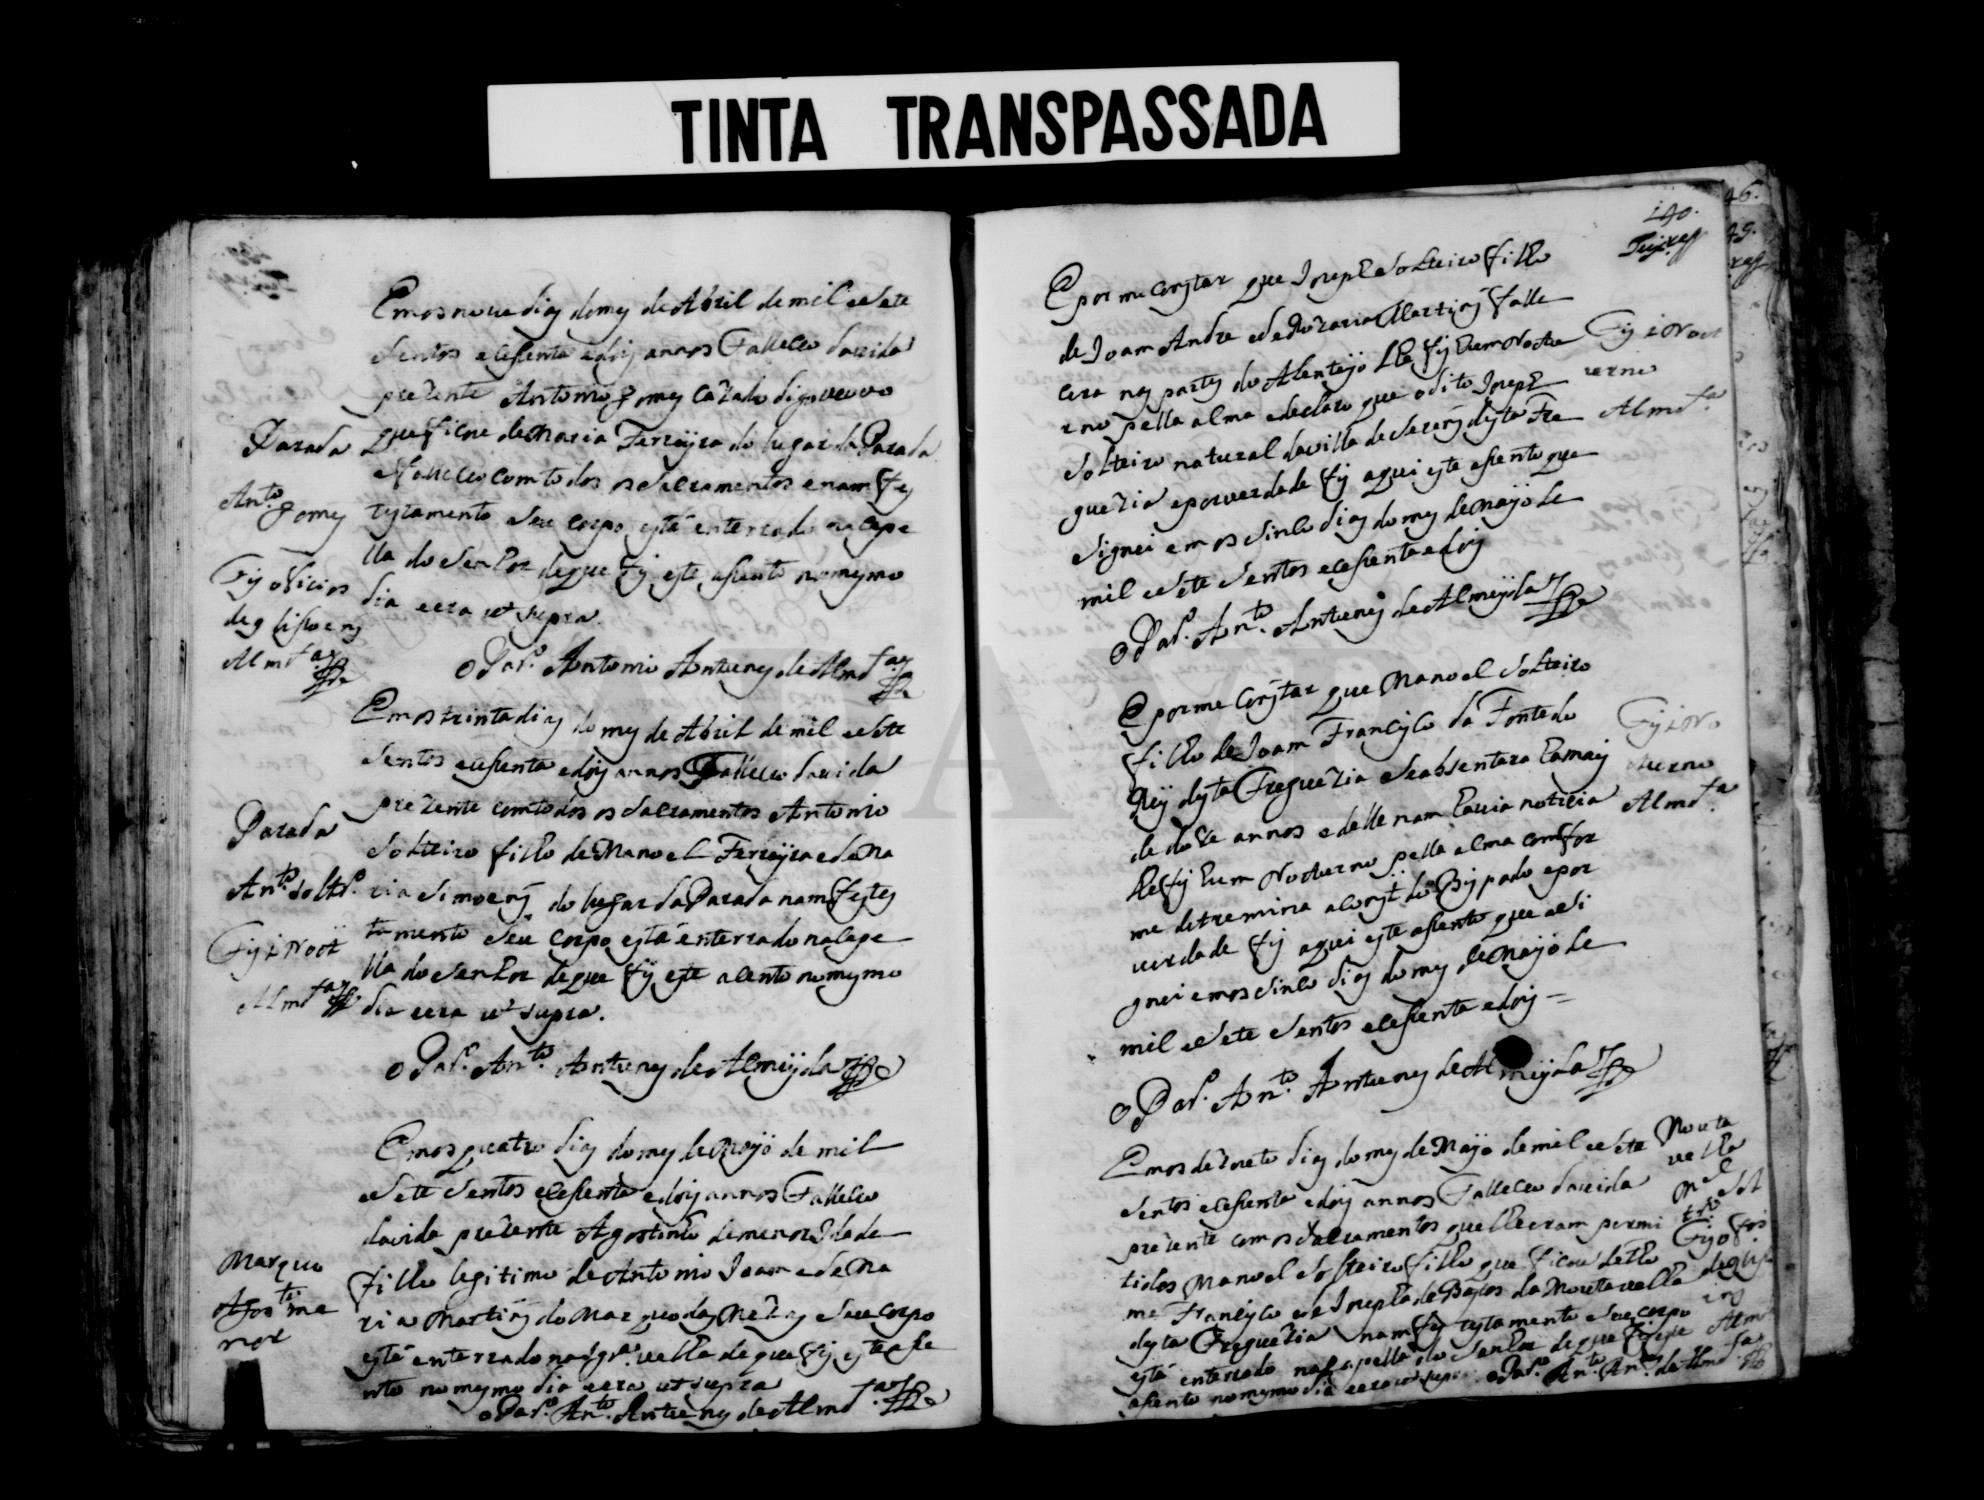 TINTA TRANSPASSADA
Emos nove dias do mes de Abril de mil e sete
sentos e cessenta e dois annos Falleceo da vida
prezente Antonio Gomes cazado digo veuvo
que ficou de Maria Ferreyra do lugar da Parada
e falleceo com todos os sacramentos e nam fes
testamento seu corpo está enterrado na cape
lla do Senhor de que fis este asento no mesmo
dia e era ut supra.
o Par.º Antonio Antunes de Almd.ª
Parada
Ant.º
Gomes
Fis oficios
de 9 lisoens
Almd.ª
Emos trinta dias do mes de Abril de mil e sete
sentos e cessenta e dois annos Falleceo da vida
prezente com todos os sacramentos Antonio
solteiro filho de Manoel Ferreyra e de Ma
ria Simoens do lugar da Parada nam fes tes
tamento seu corpo está enterrado na cape
lla do Senhor de que fis este acento no mesmo
dia e era ut supra.
o Par.º Ant.º Antunes de Almeyda
Parada
Ant.º solt.º
Fis 1 Noct
Almd.ª
Emos quatro dias do mes de Mayo de mil
e sete sentos e cessenta e dois annos Falleceo
da vida prezente Agostinho de menor Idade
filho legitimo de Antonio Joam e de Ma
ria Martins do Marquo das Mezas seu corpo
está enterrado na Igr.ª velha de que fis este ase
nto no mesmo dia e era ut supra
o Par.º Ant.º Antunes de Almd.ª
Marquo
Agos.to me
nor
140.
E por me constar que Joseph solteiro filho
de Joam Andre e de Luzaria Martins falle
cera nas partes do Alentejo lhe fis hum Noctu
rno pella alma e declaro que o dito Joseph
solteiro natural da villa de Serem desta Fre
guezia e por verdade fis aqui este asento que
signei emos sinco dias do mes de Mayo de
mil e sete sentos e cessenta e dois
o Par.º Ant.º Antunes de Almeyda
Fis 1 Noct
urno
Almd.ª
E por me constar que Manoel solteiro
filho de Joam Francisco da Fonte do
desta Freguezia se absentara ha mais
de doze annos e delle nam havia noticia
lhe fis hum Nocturno pella alma comfor
me detremina a const. do Bispado e por
verdade fis aqui este asento que asi
gnei emos sinco dias do mes de Mayo de
mil e sete sentos e cessenta e dois =
o Par.º Ant.º Antunes de Almeyda
Fis 1 No
cturno
Almd.ª
Emos dezoeto dias do mes de Mayo de mil e sete
sentos e cessenta e dois annos Falleceo da vida
prezente com os sacramentos que lhe eram permi
tidos Manoel solteiro filho que ficou de Tho
me Francisco e de Josepha de Bastos da Mouta velha
desta Freguezia nam fes testamento seu corpo
está enterrado na capella do Senhor de que fis este
asento no mesmo dia e era ut supra o Par.º Ant.º Ant.es de Almd.ª
Mouta
velha
M.el solt
Fis ofos
de 9 lis
oins
Almd